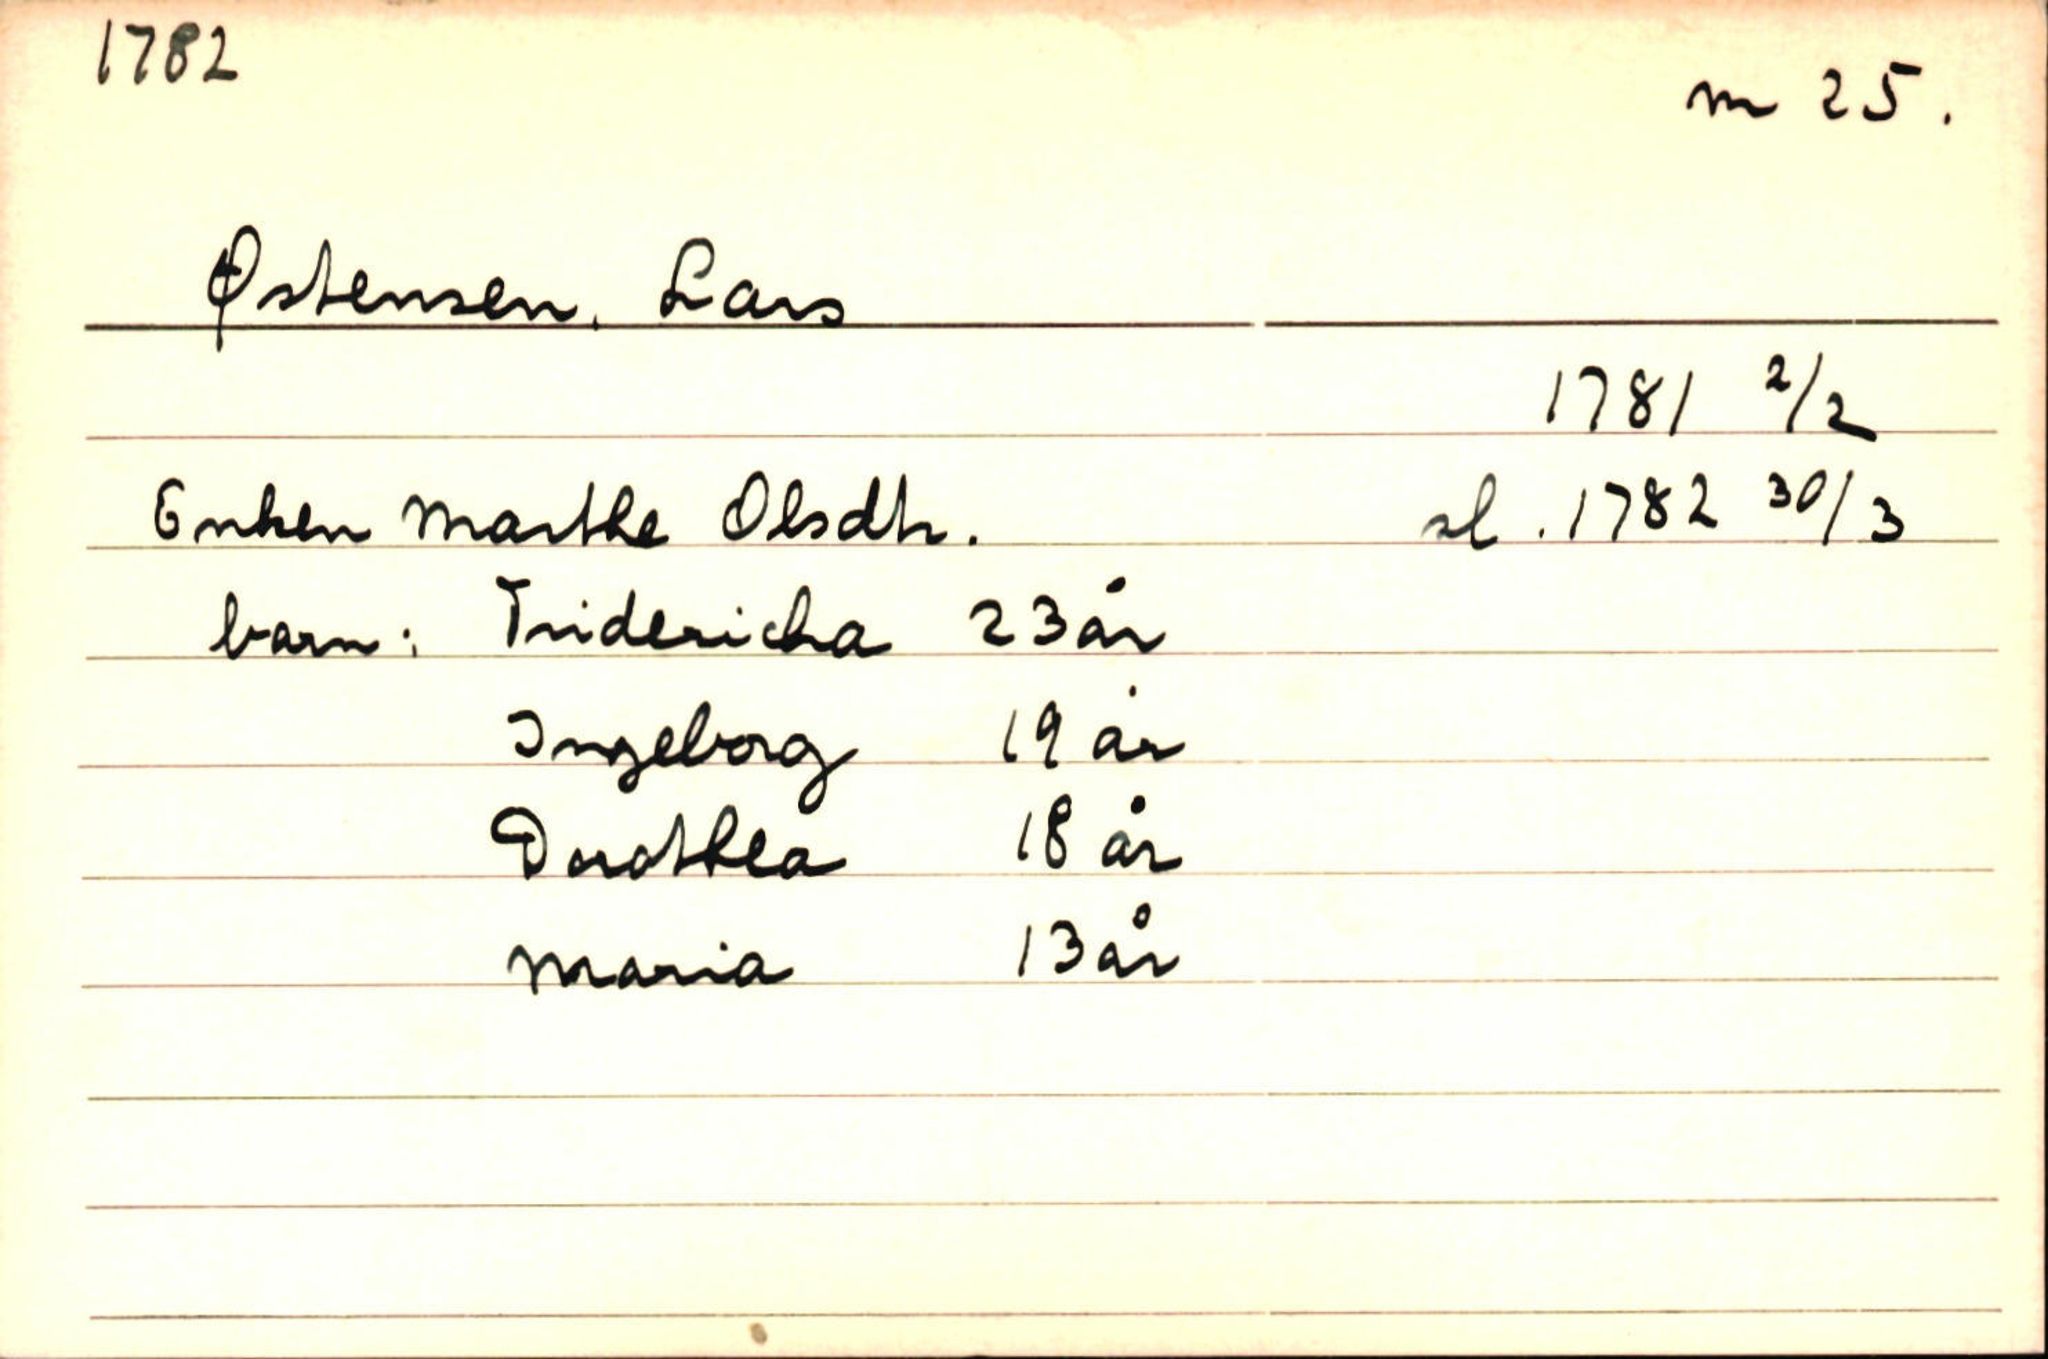 1782
m 25.
Østensen, Lars
1781 2/2
Enken Marthe Olsdtr. sl. 1782 30/3
barn: Fridericha 23 år
Ingeborg 19 år
Dorothea 18 år
Maria 13 år